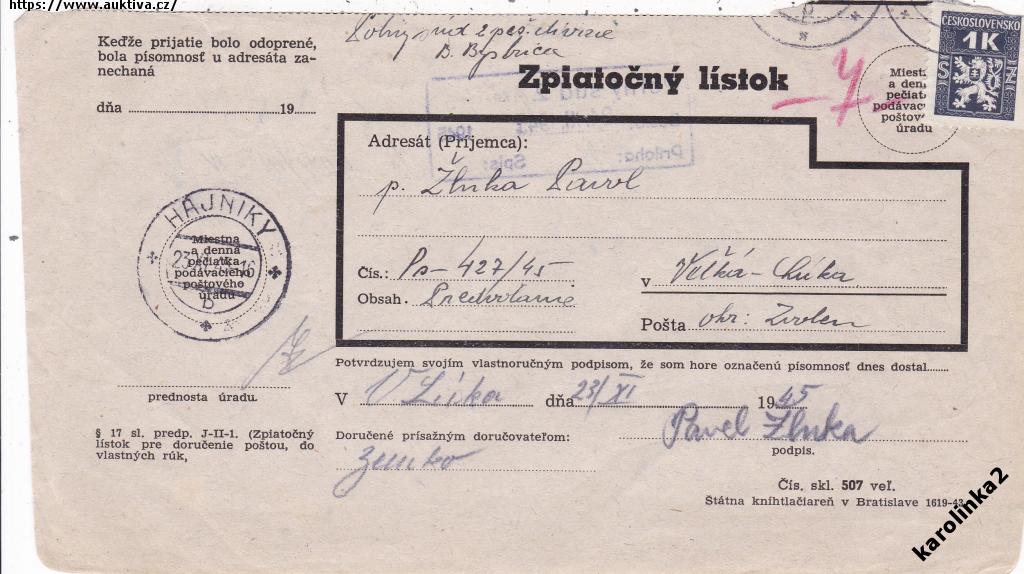 https://www.auktiva.cz/
Keďže prijatie bolo odoprené,
bola písomnosť u adresáta za-
nechaná
dňa 19
2 pes. divizie
B. Bystrica
Zpiatočný lístok
ČESKOSLOVENSKO
1 K
S Z
Miestna
a denná
pečiatka
podávacieho
poštového
úradu
Adresát (Príjemca):
p. Žlnka Pavol
Čís.: Ps-427/45
v Veľká-Lúka
Obsah. Predvolanie
Pošta okr: Zvolen
HÁJNIKY
Miestna
a denná
pečiatka
podávacieho
poštového
úradu
b
Potvrdzujem svojím vlastnoručným podpisom, že som hore označenú písomnosť dnes dostal
V V Lúka dňa 23/XI 1945
prednosta úradu.
Pavel Žlnka
podpis.
§ 17 sl. predp. J-II-1. (Zpiatočný
lístok pre doručenie poštou, do
vlastných rúk,
Doručené prísažným doručovateľom:
Čís. skl. 507 veľ.
Štátna kníhtlačiareň v Bratislave 1619-43
karolinka2